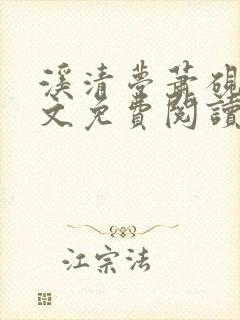 溪清夢蕭硯
文免費閱讀
江宗法